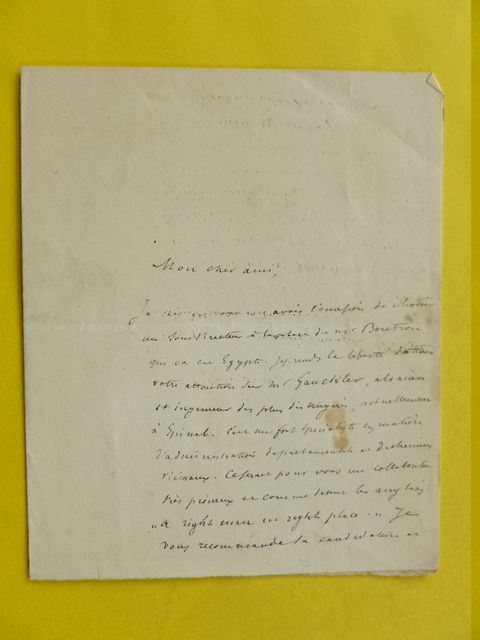 Mon cher ami,
Je sais que vous avez l'occasion de choisir
un Sous directeur à la place de Mr Boutron
qui va en Egypte. Je prends la liberté d'attirer
votre attention sur Mr Gauckler, alsacien
et ingénieur des plus distingués, actuellement
à Epinal. C'est un fort spécialiste en matière
d'administration départementale et de chemins
vicinaux. Ce serait pour vous un collaborateur
très précieux et comme disent les anglais
"a right man in right place". Je
vous recommande sa candidature et